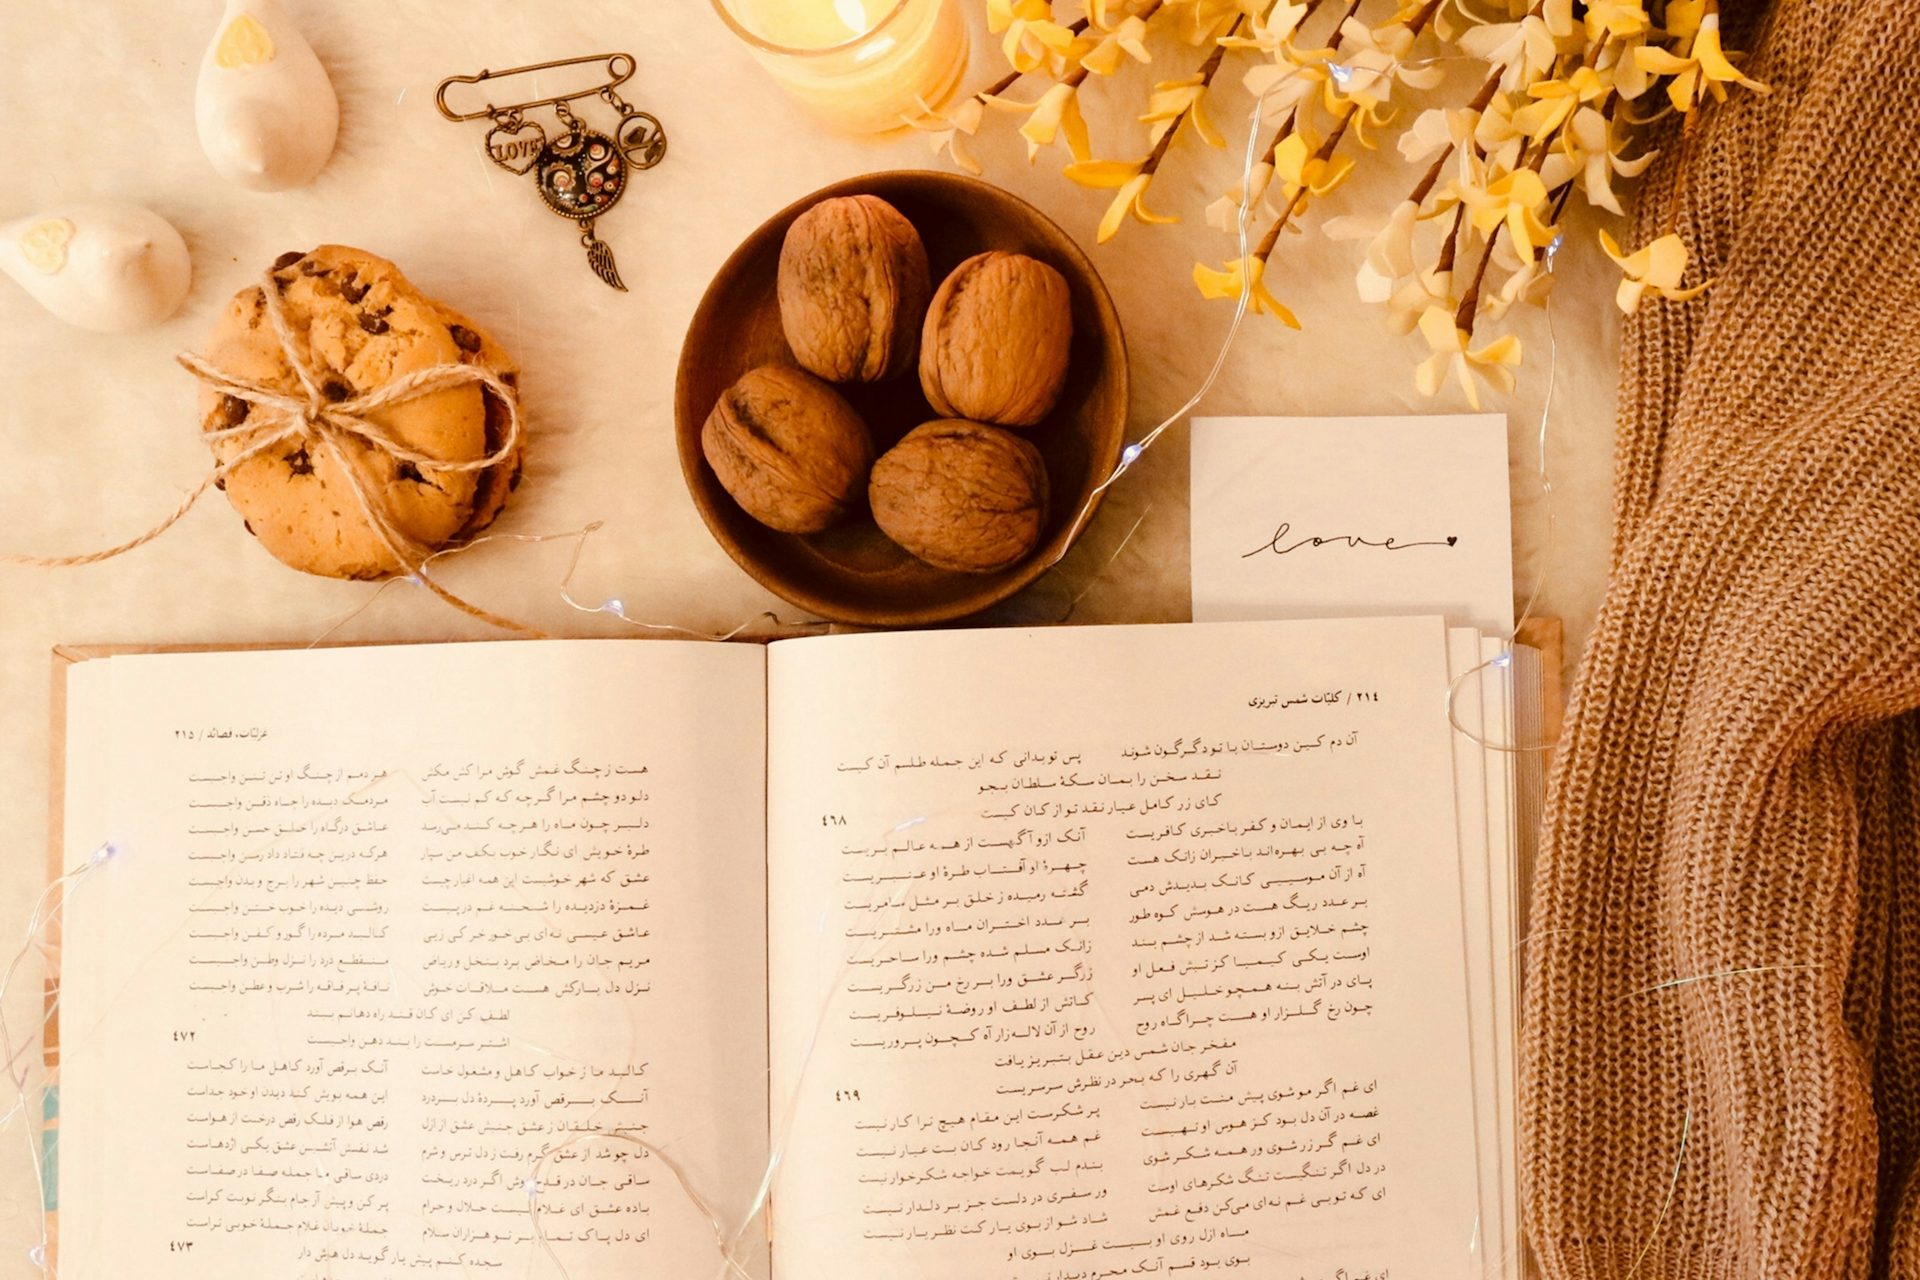 LOVE
love
۲۱٤ / کلیّات شمس تبریزی
آن دم کین دوستان با تو دگرگون شوند پس تو بدانی که این جمله طلسم آن کیست
نقد سخن را بمان سکهٔ سلطان بجو
کای زر کامل عیار نقد تو از کان کیست
٤٦۸
با وی از ایمان و کفر باخبری کافریست آنک ازو آگهست از همه عالم بریست
آه چه بی بهره‌اند باخبران زانک هست چهرهٔ او آفتاب طرهٔ او عنبریست
آه از آن موسیی کانک بدیدش دمی گشته رمیده ز خلق بر مثل سامریست
بر عدد ریگ هست در هوسش کوه طور بر عدد اختران ماه ورا مشتریست
چشم خلایق ازو بسته شد از چشم بند زانک مسلم شده چشم ورا ساحریست
اوست یکی کیمیا کز تبش فعل او زرگر عشق ورا بر رخ من زرگریست
پای در آتش بنه همچو خلیل ای پسر کاتش از لطف او روضهٔ نیلوفریست
چون رخ گلزار او هست چراگاه روح روح از آن لاله‌زار آه که چون پروریست
مفخر جان شمس دین عقل بتبریز یافت
آن گهری را که بحر در نظرش سرسریست
٤٦۹
ای غم اگر مو شوی پیش منت بار نیست پر شکرست این مقام هیچ ترا کار نیست
غصه در آن دل بود کز هوس او تهیست غم همه آنجا رود کان بت عیار نیست
ای غم گر زر شوی ور همه شکر شوی بندم لب گویمت خواجه شکرخوار نیست
در دل اگر تنگیست تنگ شکرهای اوست ور سفری در دلست جز بر دلدار نیست
ای که تو بی غم نه‌ای می‌کن دفع غمش شاد شو از بوی یار کت نظر یار نیست
ماه ازل روی او بیت و غزل بوی او
بوی بود قسم آنک محرم دیدار نیست
غزلیّات، قصائد / ۲۱۵
هست ز چنگ غمش گوش مرا کش مکش هر دمم از چنگ او تن تنن واجبست
دلو دو چشم مرا گرچه که کم نیست آب مردمک دیده را چاه ذقن واجبست
دلبر چون ماه را هرچه کند می‌رسد عاشق درگاه را خلق حسن واجبست
طرهٔ خویش ای نگار خوب بکف من سپار هرکه درین چه فتاد داد رسن واجبست
عشق که شهر خوشیست این همه اغیار چیست حفظ چنین شهر را برج و بدن واجبست
غمزهٔ دزدیده را شحنهٔ غم در پیست روشنی دیده را خوب ختن واجبست
عاشق عیسی نه‌ای بی خور خر کی زیی کالبد مرده را گور و کفن واجبست
مریم جان را مخاض برد بنخل و ریاض منقطع درد را نزل وطن واجبست
نزل دل بارکش هست ملاقات خوش ناقهٔ پر فاقه را شرب و عطن واجبست
لطف کن ای کان قند راه دهانم ببند
اشتر سرمست را بند دهن واجبست
٤۷۲
کالبد ما ز خواب کاهل و مشغول خاست آنک برقص آورد کاهل ما را کجاست
آنک برقص آورد پردهٔ دل بردرد این همه بویش کند دیدن او خود جداست
جنبش خلقان ز عشق جنبش عشق از ازل رقص هوا از فلک رقص درخت از هواست
دل چو شد از عشق گرم رفت ز دل ترس و شرم شد نفسش آتشین عشق یکی اژدهاست
ساقی جان در قدح دوش اگر درد ریخت دردی ساقی ما جمله صفا در صفاست
باده عشق ای غلام نیست حلال و حرام پر کن و پیش آر جام بنگر نوبت کراست
ای دل پاک تمام بر تو هزاران سلام جملهٔ خوبان غلام جملهٔ خوبی تراست
٤۷۳
سجده کنم پیش یار گوید دل هوش دار